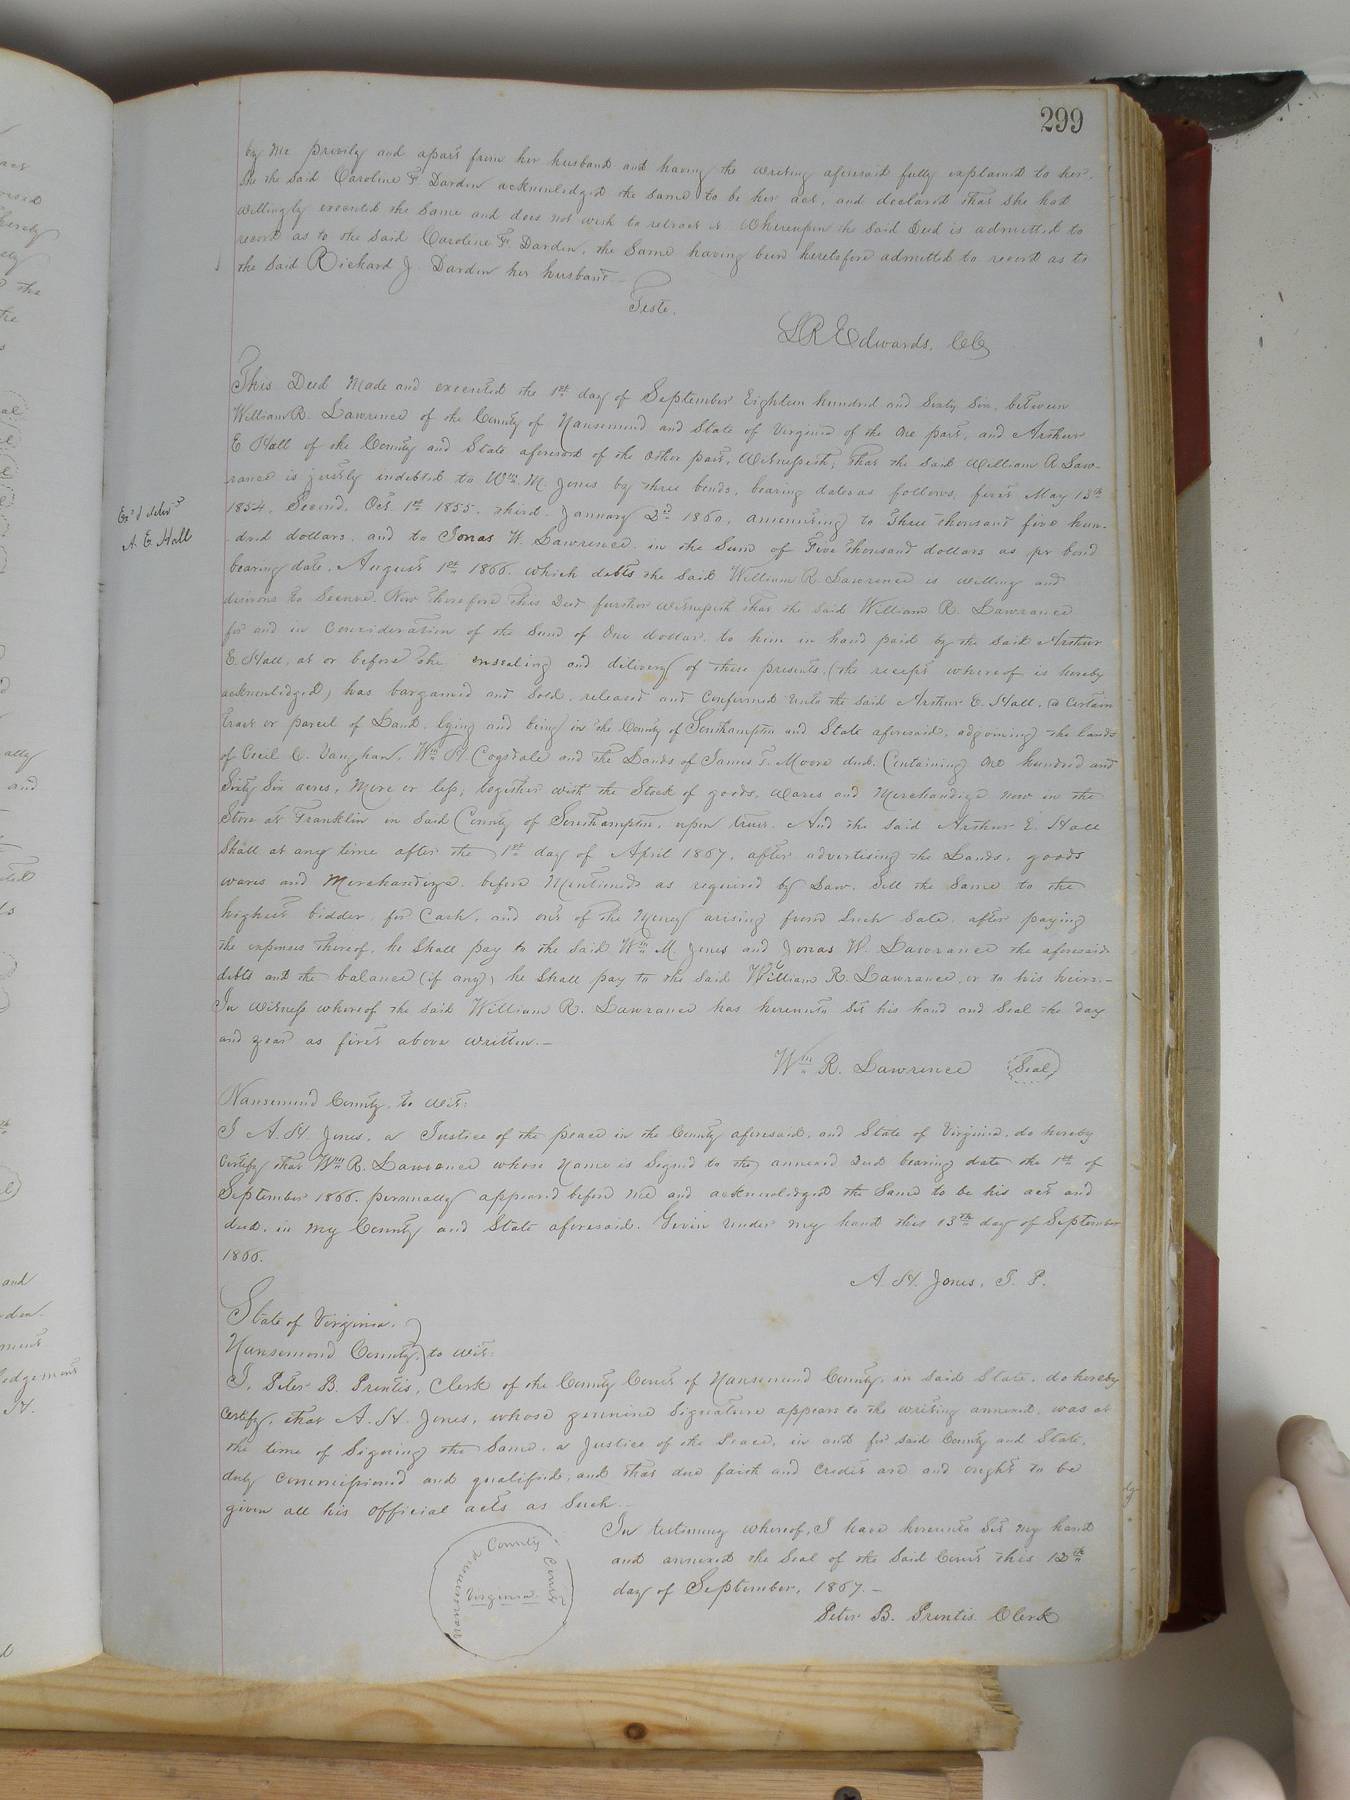 299
by me privily and apart from her husband and having the writing aforesaid fully explained to her,
She the said Caroline F Darden acknowledged the same to be her act, and declared that she had
willingly executed the same and does not wish to retract it. Whereupon the said Deed is admitted to
record as to the said Caroline F. Darden, the same having been heretofore admitted to record as to
the said Richard J. Darden her husband
Teste.
L R Edwards, CC
This Deed Made and executed the 1st day of September Eighteen hundred and Sixty Six, between
William R. Lawrence of the County of Nansemond and State of Virginia of the one part, and Arthur
E Hall of the County and State aforesaid of the other part, Witnesseth; That the said William R Law-
rance is justly indebted to Wm. M. Jones by three bonds, bearing dates as follows, first May 13th
1854, Second, Oct. 1st 1855. third January 2d 1860, amounting to Three thousand five hun-
Exd & delivd
A. E. Hall
dred dollars, and to Jonas W. Lawrence in the Sum of Five thousand dollars as pr bond
bearing date, August 1st 1866. which debts the said William R. Lawrence is willing and
desirous to Secure. Now therefore this Deed further witnesseth that the said William R. Lawrance
for and in consideration of the Sum of One dollar, to him in hand paid by the said Arthur
E. Hall, at or before the ensealing and delivery of these presents, (the receipt whereof is hereby
acknowledged) has bargained and sold, released and confirmed unto the said Arthur E. Hall, a Certain
tract or parcel of Land, lying and being in the County of Southampton and State aforesaid, adjoining the lands
of Cecil C. Vaughan, Wm. H Cogsdale and the Lands of James T. Moore decd. Containing one hundred and
Sixty Six acres, More or less, together with the Stock of goods, wares and Merchandize now in the
Store at Franklin in said County of Southampton, upon trust. And the said Arthur E. Hall
Shall at any time after the 1st day of April 1867, after advertising the Lands, goods
wares and Merchandize, before Mentioned as required by Law, Sell the Same to the
highest bidder, for Cash, and out of the Money arising from Such Sale, after paying
the expenses thereof, he Shall pay to the said Wm M Jones and Jonas W. Lawrance the aforesaid
debts and the balance (if any) he Shall pay to the said William R. Lawrance, or to his heirs.-
In witness whereof the said William R. Lawrance has hereunto Set his hand and Seal the day
and year as first above written.-
Wm R. Lawrence (Seal)
Nansemond County, to wit:
I A. H. Jones, a Justice of the peace in the County aforesaid, and State of Virginia, do hereby
Certify that Wm R. Lawrance whose Name is Signed to the annexed deed bearing date the 1st of
September 1866. personally appeared before me and acknowledged the Same to be his act and
deed, in my County and State aforesaid. Given under my hand this 13th day of September
1866.
A. H. Jones, J. P.
State of Virginia,
Nansemond County, ) to wit:
I, Peter B. Prentis, Clerk of the County Court of Nansemond County, in said State, do hereby
Certify, that A. H. Jones, whose genuine Signature appears to the writing annexed, was at
the time of Signing the Same, a Justice of the Peace, in and for said County and State,
duly commissioned and qualified, and that due faith and credit are and ought to be
given all his official acts as Such.-
In testimony whereof, I have hereunto Set my hand
and annexed the Seal of the said Court this 12th
day of September, 1867.-
Peter B. Prentis Clerk
Nansemond County Court
Virginia